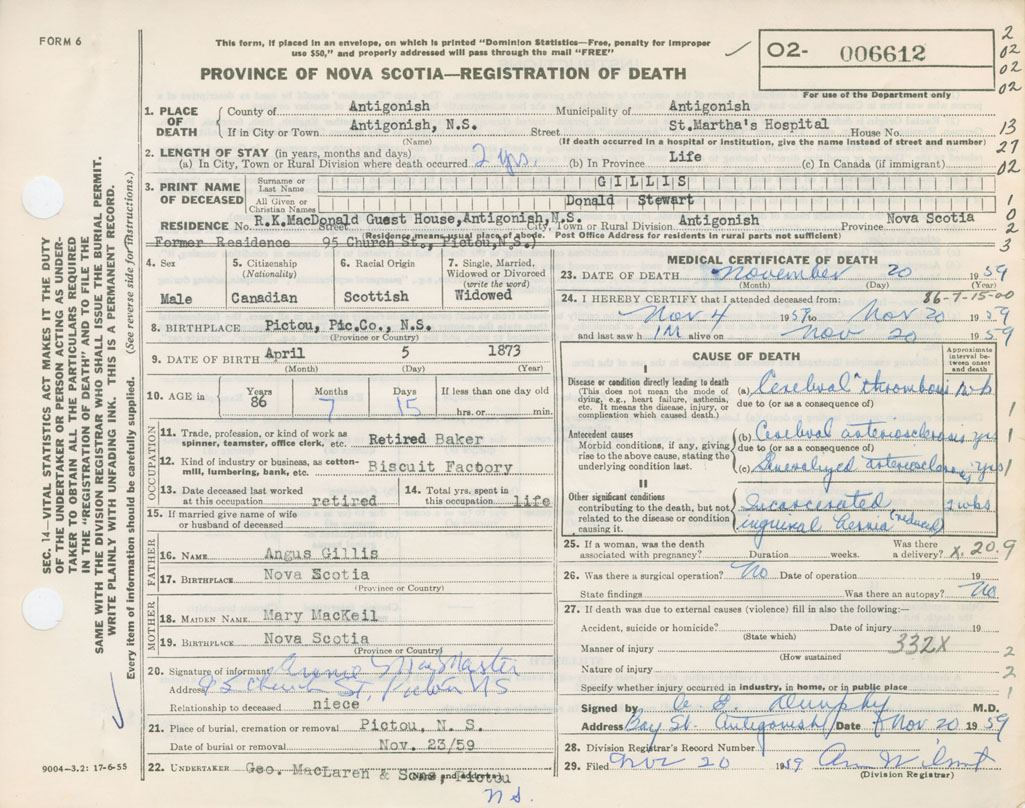 FORM 6
This form, if placed in an envelope, on which is printed "Dominion Statistics—Free, penalty for improper
use $50," and properly addressed will pass through the mail "FREE"
PROVINCE OF NOVA SCOTIA—REGISTRATION OF DEATH
02- 006612
For use of the Department only
2
02
02
02
13
27
02
1
0
2
3
1. PLACE OF DEATH
County of Antigonish Municipality of Antigonish
If in City or Town Antigonish, N.S. Street St.Martha's Hospital House No.
(Name) (If death occurred in a hospital or institution, give the name instead of street and number)
2. LENGTH OF STAY (in years, months and days)
(a) In City, Town or Rural Division where death occurred 2 yrs. (b) In Province Life (c) In Canada (if immigrant)
3. PRINT NAME OF DECEASED
Surname or Last Name GILLIS
All Given or Christian Names Donald Stewart
RESIDENCE No. R.K.MacDonald Guest House,Antigonish,N.S. Street City, Town or Rural Division Antigonish Province Nova Scotia
(Residence means usual place of abode. Post Office Address for residents in rural parts not sufficient)
Former Residence 95 Church St., Pictou,N.S.)
4. Sex Male
5. Citizenship (Nationality) Canadian
6. Racial Origin Scottish
7. Single, Married, Widowed or Divorced (write the word) Widowed
8. BIRTHPLACE Pictou, Pic.Co., N.S.
(Province or Country)
9. DATE OF BIRTH April 5 1873
(Month) (Day) (Year)
10. AGE in Years 86 Months 7 Days 15 If less than one day old hrs. or min.
OCCUPATION
11. Trade, profession, or kind of work as spinner, teamster, office clerk, etc. Retired Baker
12. Kind of industry or business, as cotton-mill, lumbering, bank, etc. Biscuit Factory
13. Date deceased last worked at this occupation retired
14. Total yrs. spent in this occupation life
15. If married give name of wife or husband of deceased
FATHER
16. NAME Angus Gillis
17. BIRTHPLACE Nova Scotia
(Province or Country)
MOTHER
18. MAIDEN NAME Mary MacKeil
19. BIRTHPLACE Nova Scotia
(Province or Country)
20. Signature of informant
Address 95 Church St, Pictou NS
Relationship to deceased niece
21. Place of burial, cremation or removal Pictou, N. S.
Date of burial or removal Nov. 23/59
22. UNDERTAKER Geo. MacLaren & Sons, Pictou
(Name and address)
N S.
9004-3.2: 17-6-55
MEDICAL CERTIFICATE OF DEATH
23. DATE OF DEATH November 20 1959
(Month) (Day) (Year)
24. I HEREBY CERTIFY that I attended deceased from: 86-7-15-00
Nov 4 1959 to Nov 20 1959
and last saw h im alive on Nov 20 1959
CAUSE OF DEATH
Approximate interval between onset and death
I
Disease or condition directly leading to death
(This does not mean the mode of dying, e.g., heart failure, asthenia, etc. It means the disease, injury, or complication which caused death.)
(a) Cerebral thrombosis 1 wk
due to (or as a consequence of)
1
Antecedent causes
Morbid conditions, if any, giving rise to the above cause, stating the underlying condition last.
(b) Cerebral arteriosclerosis yrs 1
due to (or as a consequence of)
(c) Generalized arteriosclerosis yrs 1
II
Other significant conditions
contributing to the death, but not related to the disease or condition causing it.
Incarcerated inguinal hernia (reduced) 2 wks
25. If a woman, was the death associated with pregnancy? Duration weeks. Was there a delivery? X. 20.9
26. Was there a surgical operation? No Date of operation 19
State findings Was there an autopsy? No
27. If death was due to external causes (violence) fill in also the following:—
Accident, suicide or homicide? Date of injury 19
(State which)
Manner of injury 332X 2
(How sustained)
Nature of injury 2
Specify whether injury occurred in industry, in home, or in public place 1
Signed by C. E. Dunphy M.D.
Address Bay St. Antigonish Date Nov 20 1959
28. Division Registrar's Record Number
29. Filed Nov 20 1959
(Division Registrar)
SEC. 14—VITAL STATISTICS ACT MAKES IT THE DUTY
OF THE UNDERTAKER OR PERSON ACTING AS UNDER-
TAKER TO OBTAIN ALL THE PARTICULARS REQUIRED
IN THE "REGISTRATION OF DEATH" AND TO FILE THE
SAME WITH THE DIVISION REGISTRAR WHO SHALL ISSUE THE BURIAL PERMIT.
WRITE PLAINLY WITH UNFADING INK. THIS IS A PERMANENT RECORD.
Every item of information should be carefully supplied. (See reverse side for instructions.)